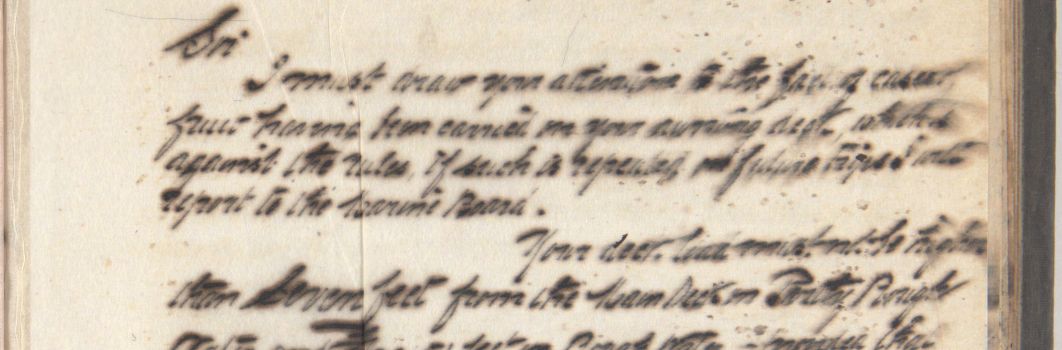 Sir
I must draw your attention to the fact of cases of
fruit having been carried on your awning deck, which is
against the rules, If such is repeated on future trips I will
report to the Marine Board.
Your deck load must not be higher
than Seven feet from the Main Deck on